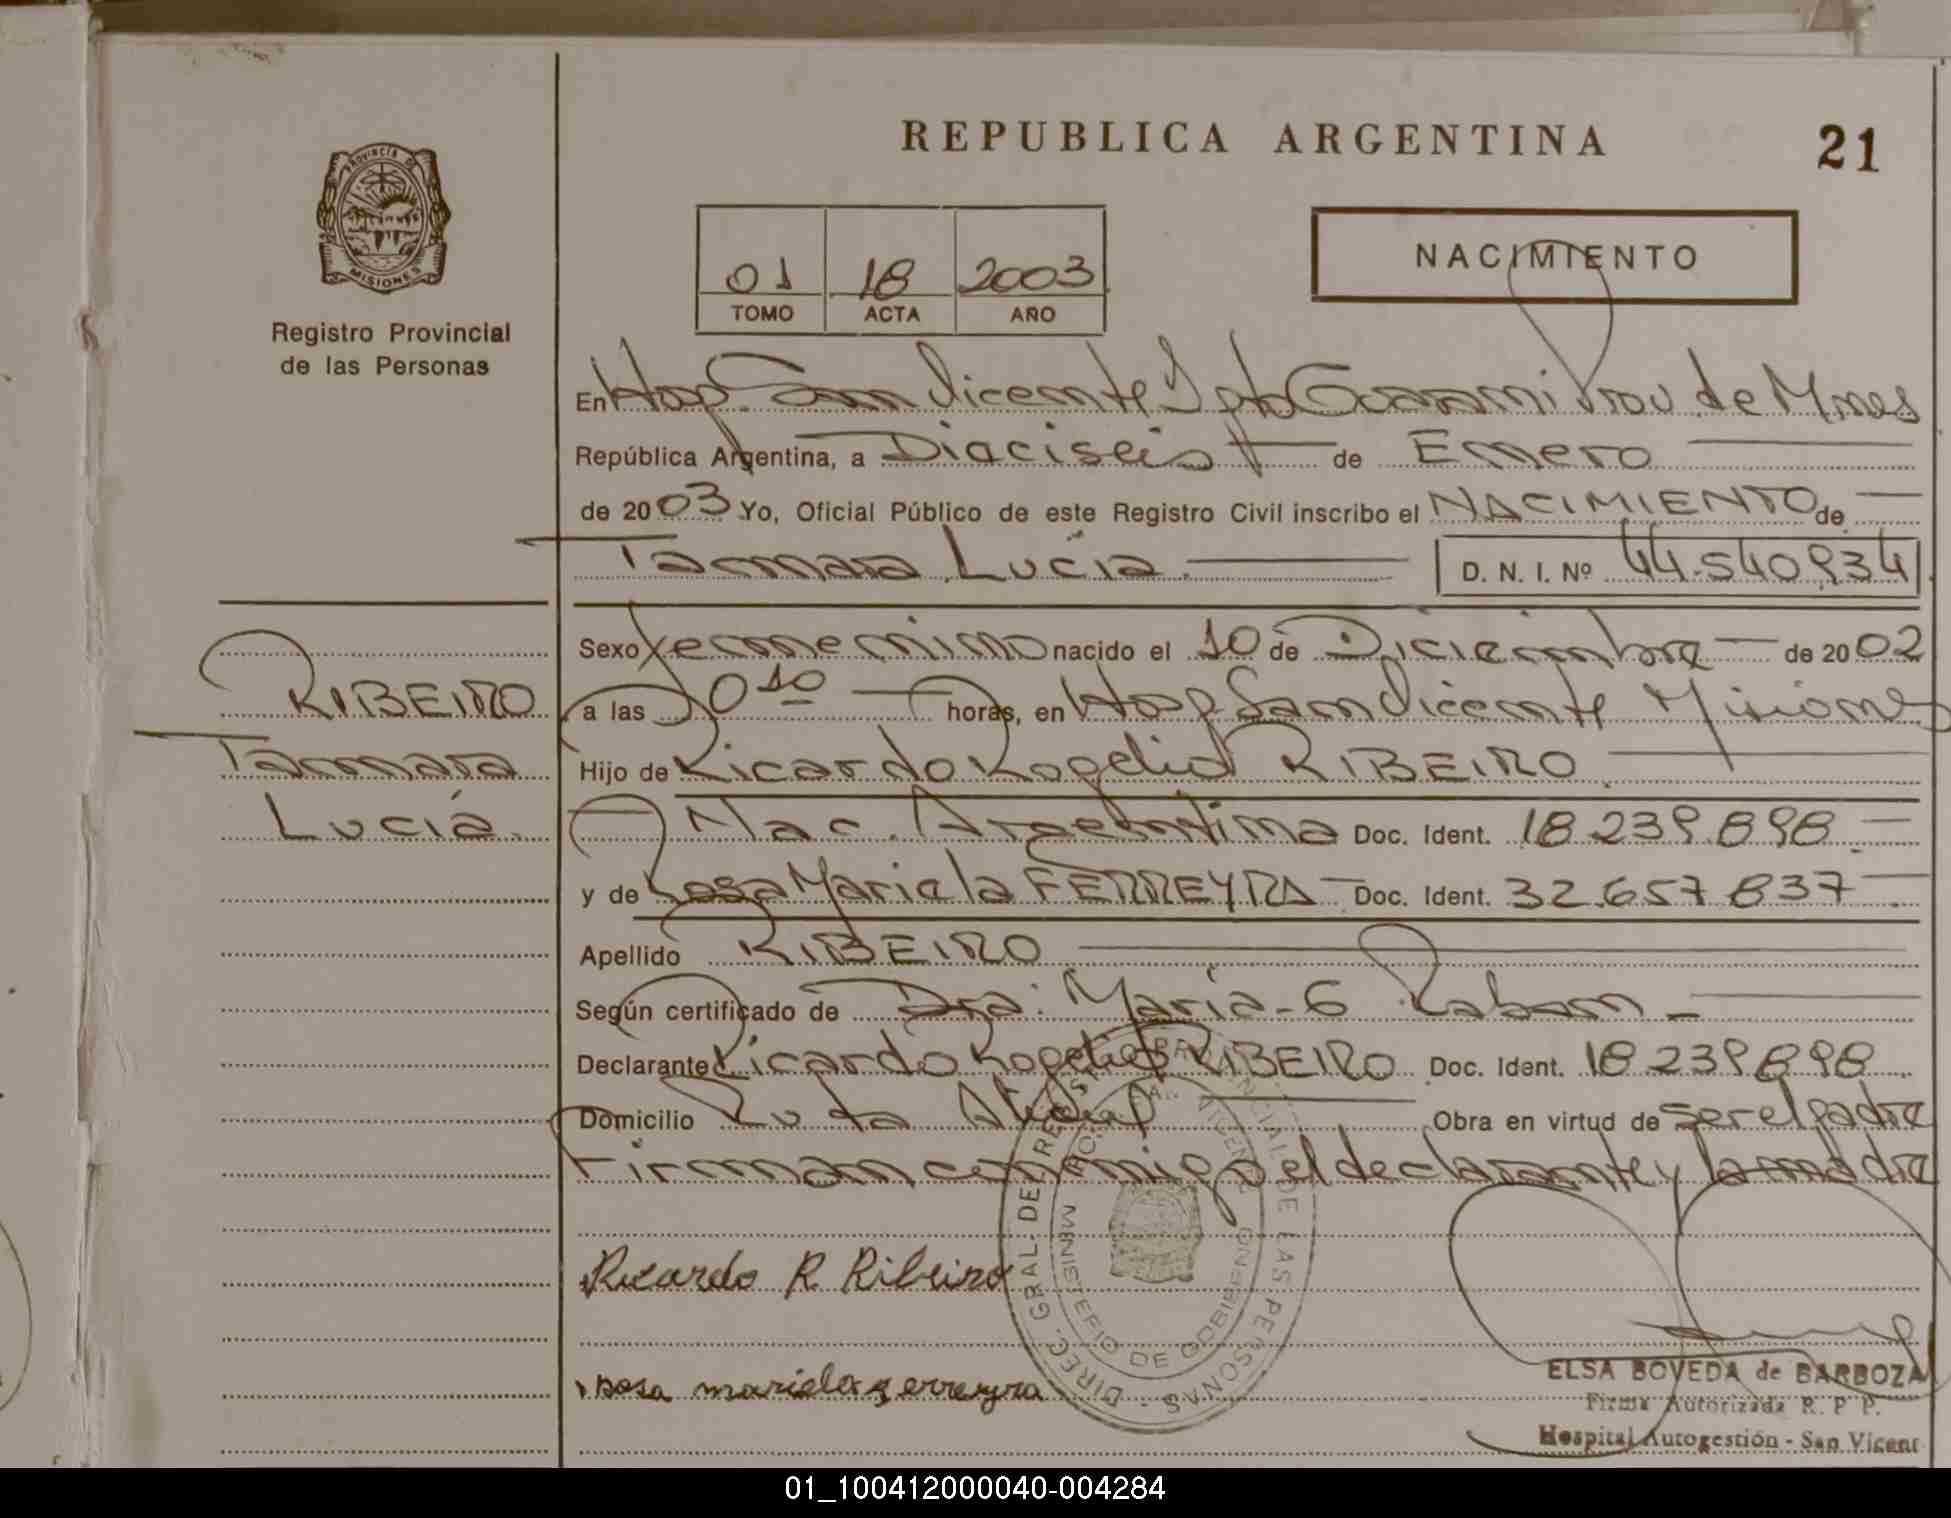 REPUBLICA ARGENTINA
21
PROVINCIA DE MISIONES
Registro Provincial
de las Personas
01 18 2003
TOMO ACTA AÑO
NACIMIENTO
En Hosp. San Vicente Dpto Guarani Prov de Mnes
República Argentina, a Diaciseis de Enero
de 2003 Yo, Oficial Público de este Registro Civil inscribo el NACIMIENTO de
Tamara Lucia D. N. I. Nº 44.540934
Sexo Femenino nacido el 10 de Diciembre de 2002
a las 0 10 horas, en Hosp San Vicente Misiones
Hijo de Ricardo Rogelio RIBEIRO
Nac. Argentina Doc. Ident. 18.239.898
y de Rosa Mariela FERREYRA Doc. Ident. 32.657.837
Apellido RIBEIRO
Según certificado de Dra: María-G Rabon
Declarante Ricardo Rogelio RIBEIRO Doc. Ident. 18.239.898
Domicilio Ruta Obra en virtud de ser el padre
Firman conmigo el declarante y la madre
RIBEIRO
Tamara
Lucía
Ricardo R Ribeiro
rosa mariela ferreyra
DIREC. GRAL. DEL REGISTRO PROVINCIAL DE LAS PERSONAS
MINISTERIO DE GOBIERNO
ELSA BOVEDA de BARBOZA
Firma Autorizada R. P. P.
Hospital Autogestión - San Vicent
01_100412000040-004284